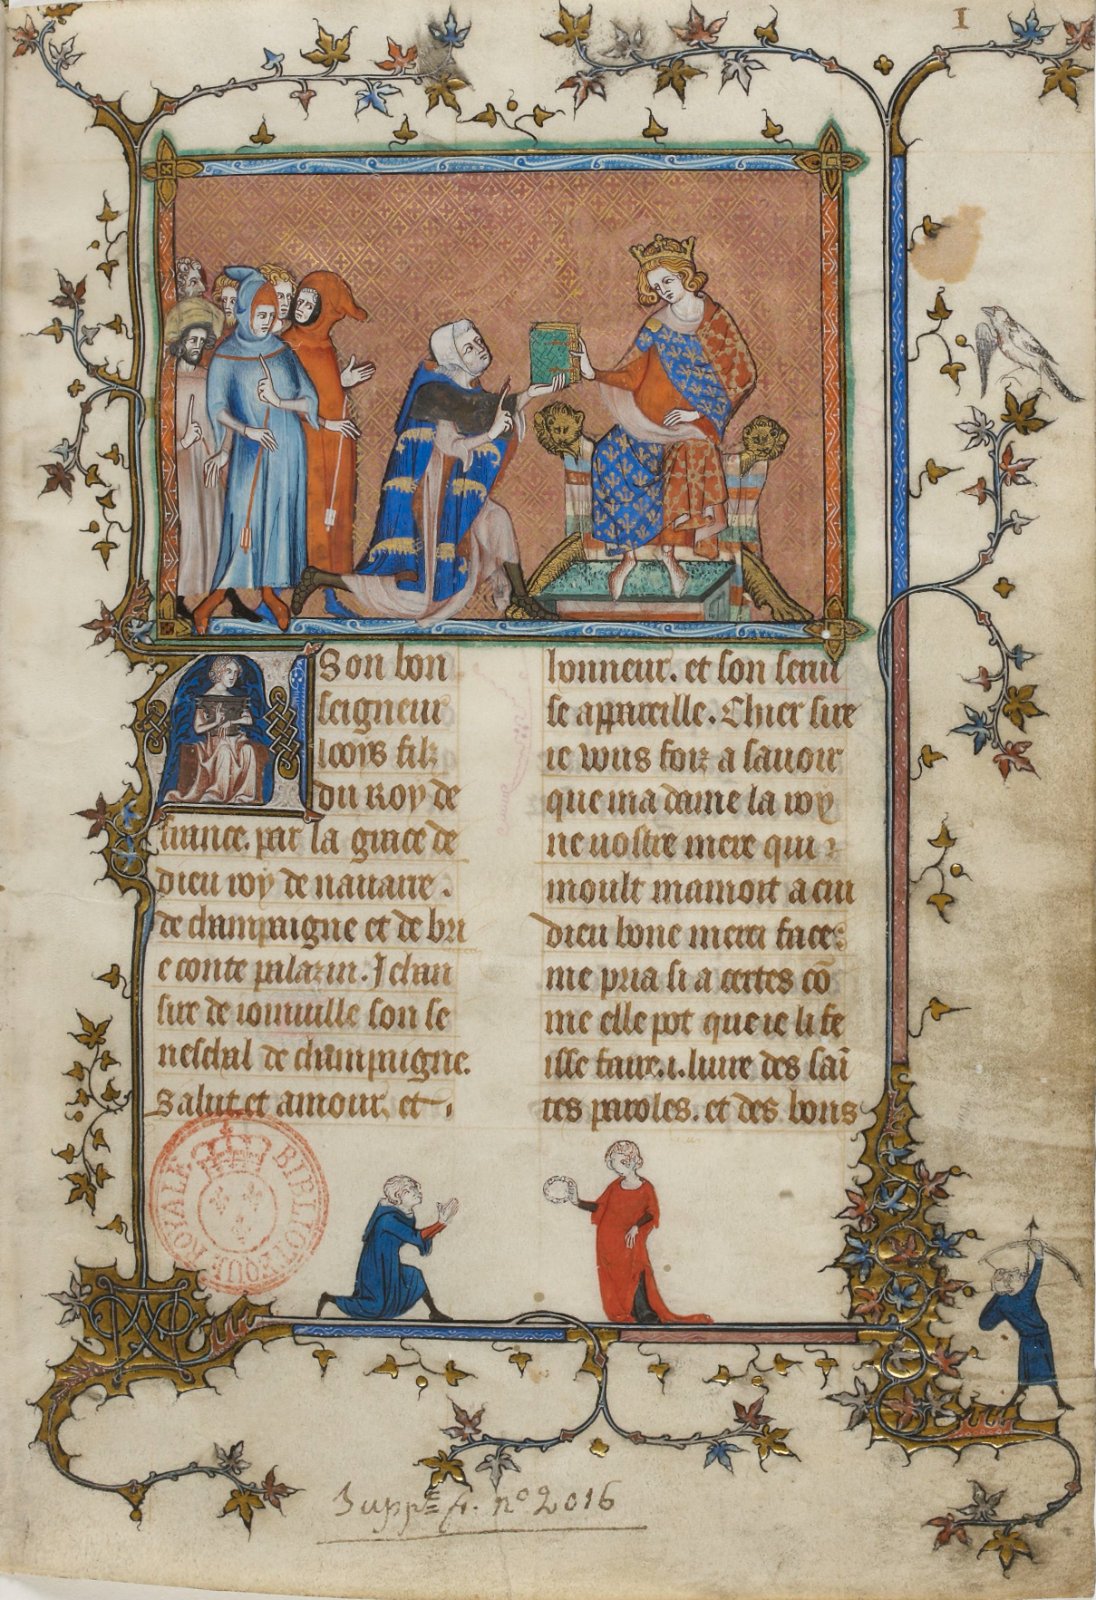 I
A Son bon
seigneur
looys filz
du Roy de
france. par la grace de
dieu roy de nauarre.
de champaigne et de bri
e conte palazin. Jehan
sire de ioinuille son se
neschal de champaigne.
Salut et amour, et
honneur. et son seruise
se appareille. Chier sire
ie vous foiz a sauoir
que ma dame la roy
ne uostre mere qui
moult mamoit a cui
dieu bone merci face:
me pria si a certes cō
me elle pot que ie li fe
isse faire .i. liure des saī
tes paroles. et des bons
BIBLIOTHEQUE ROYALE
Supp. fr. nº 2016